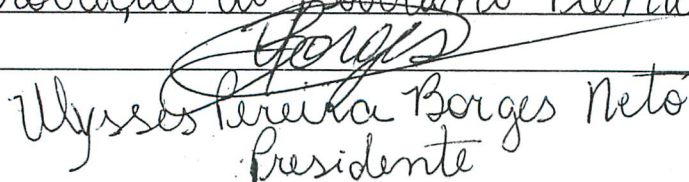 Borges
Ulysses Pereira Borges Neto
Presidente